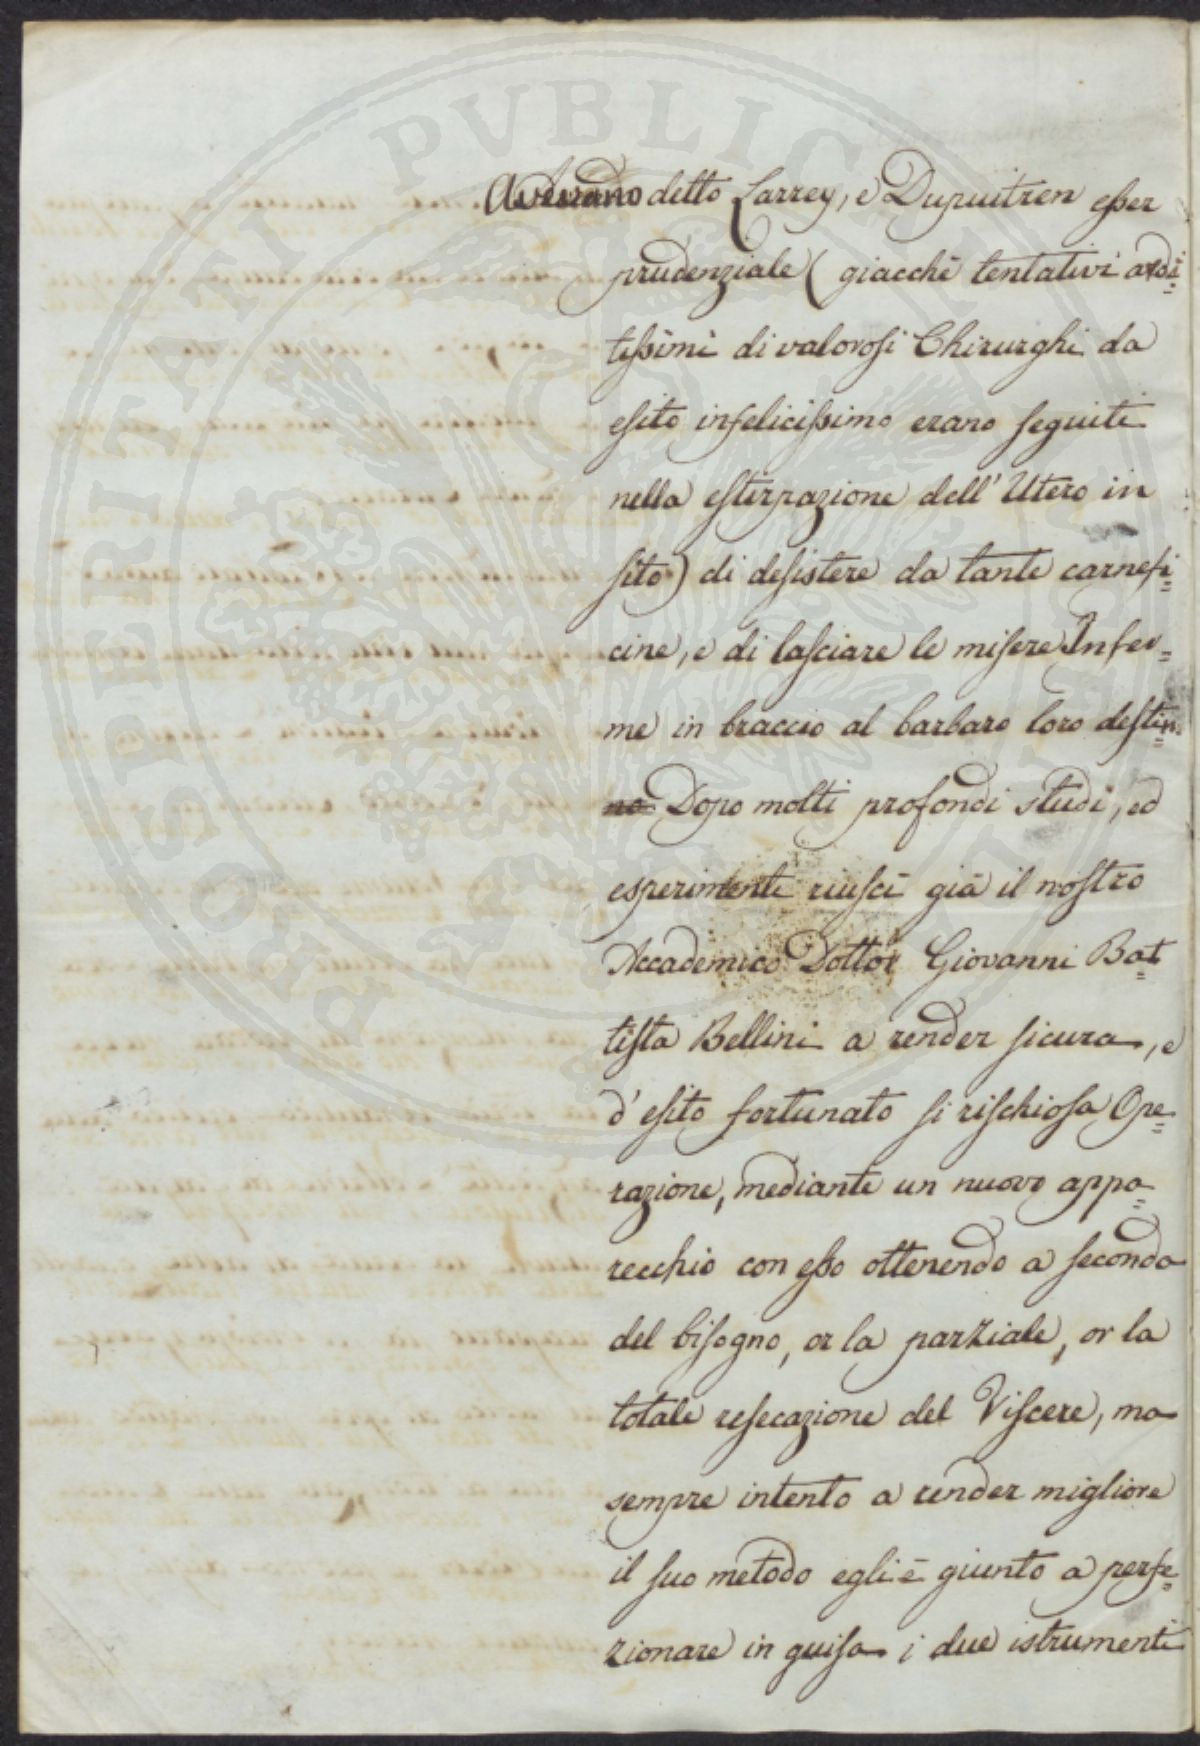 Avevano detto Larrey, e Dupuitren esser
prudenziale (giacchè tentativi ardi=
tissimi di valorosi Chirurghi da
esito infelicissimo erano seguiti
nella estirpazione dell' Utero in
sito) di desistere da tante carnefi=
cine, e di lasciare le misere Infer=
me in braccio al barbaro loro destin=
no Dopo molti profondi studi, ed
esperimenti riuscì già il nostro
Accademico Dottor Giovanni Bat=
tista Bellini a render sicura, e
d'esito fortunato si rischiosa Ope=
razione, mediante un nuovo appa=
recchio con esso ottenendo a seconda
del bisogno, or la parziale, or la
totale resecazione del Viscere, ma
sempre intento a render migliore
il suo metodo egli è giunto a perfe=
zionare in guisa i due istrumenti
PROSPERITATI PVBLICAE